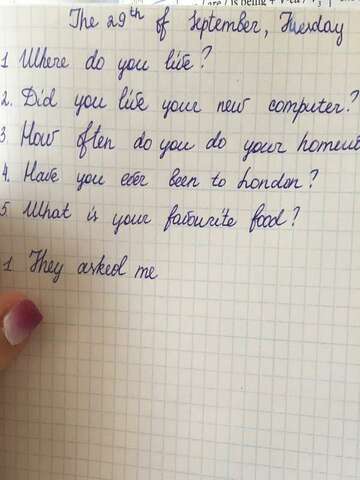 are / is being + V-ed / V3
The 29th of September, Tuesday
1 Where do you live?
2. Did you like your new computer?
3 How often do you do your homew
4. Have you ever been to London?
5. What is your favourite food?
1 They asked me